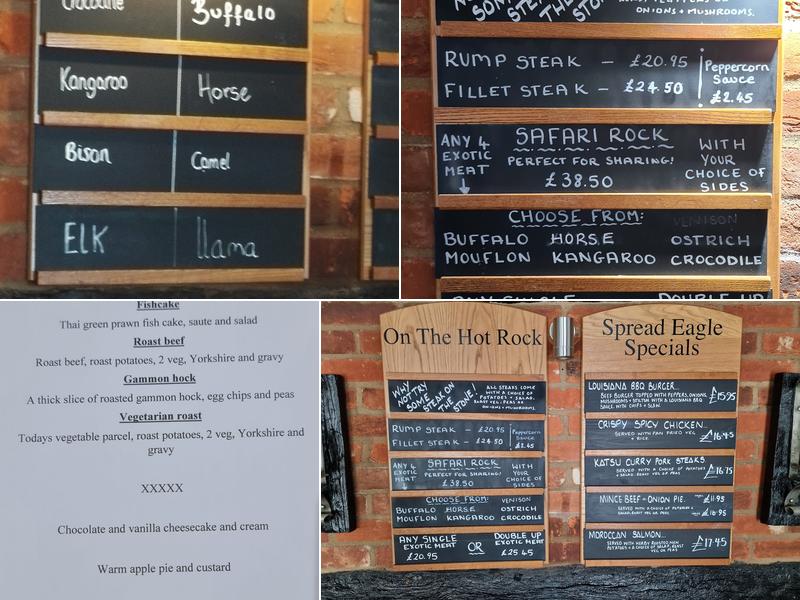 Crocodile
Buffalo
Kangaroo
Horse
Bison
Camel
ELK
llama
ONIONS + MUSHROOMS.
RUMP STEAK – £20.95
FILLET STEAK – £24.50
Peppercorn
Sauce
£2.45
ANY 4
EXOTIC
MEAT
SAFARI ROCK
PERFECT FOR SHARING!
£38.50
WITH
YOUR
CHOICE OF
SIDES
CHOOSE FROM: VENISON
BUFFALO HORSE OSTRICH
MOUFLON KANGAROO CROCODILE
Fishcake
Thai green prawn fish cake, saute and salad
Roast beef
Roast beef, roast potatoes, 2 veg, Yorkshire and gravy
Gammon hock
A thick slice of roasted gammon hock, egg chips and peas
Vegetarian roast
Todays vegetable parcel, roast potatoes, 2 veg, Yorkshire and
gravy
XXXXX
Chocolate and vanilla cheesecake and cream
Warm apple pie and custard
On The Hot Rock
WHY NOT TRY
SOME
STEAK ON
THE
STONE!
ALL STEAKS COME
WITH A CHOICE OF
POTATOES + SALAD,
ROAST VEG, PEAS OR
ONIONS + MUSHROOMS
RUMP STEAK – £20.95
FILLET STEAK – £24.50
Peppercorn
Sauce
£2.45
ANY 4
EXOTIC
MEAT
SAFARI ROCK
PERFECT FOR SHARING!
£38.50
WITH
YOUR
CHOICE OF
SIDES
CHOOSE FROM: VENISON
BUFFALO HORSE OSTRICH
MOUFLON KANGAROO CROCODILE
ANY SINGLE
EXOTIC MEAT
£20.95
OR
DOUBLE UP
EXOTIC MEAT
£25.45
Spread Eagle
Specials
LOUISIANA BBQ BURGER...
BEEF BURGER TOPPED WITH PEPPERS, ONIONS,
MUSHROOMS + STILTON WITH A LOUISIANA BBQ
SAUCE, WITH CHIPS + SLAW.
£15.95
CRISPY SPICY CHICKEN...
SERVED WITH PAN FRIED VEG
+ RICE.
£16.45
KATSU CURRY PORK STEAKS
SERVED WITH A CHOICE OF POTATOES
+ SALAD, ROAST VEG OR PEAS
£16.75
MINCE BEEF + ONION PIE.
SERVED WITH A CHOICE OF POTATOES +
SALAD, ROAST VEG OR PEAS
£11.95
MOROCCAN SALMON...
SERVED WITH HERBY ROASTED NEW
POTATOES + A CHOICE OF SALAD, ROAST
VEG OR PEAS
£17.45